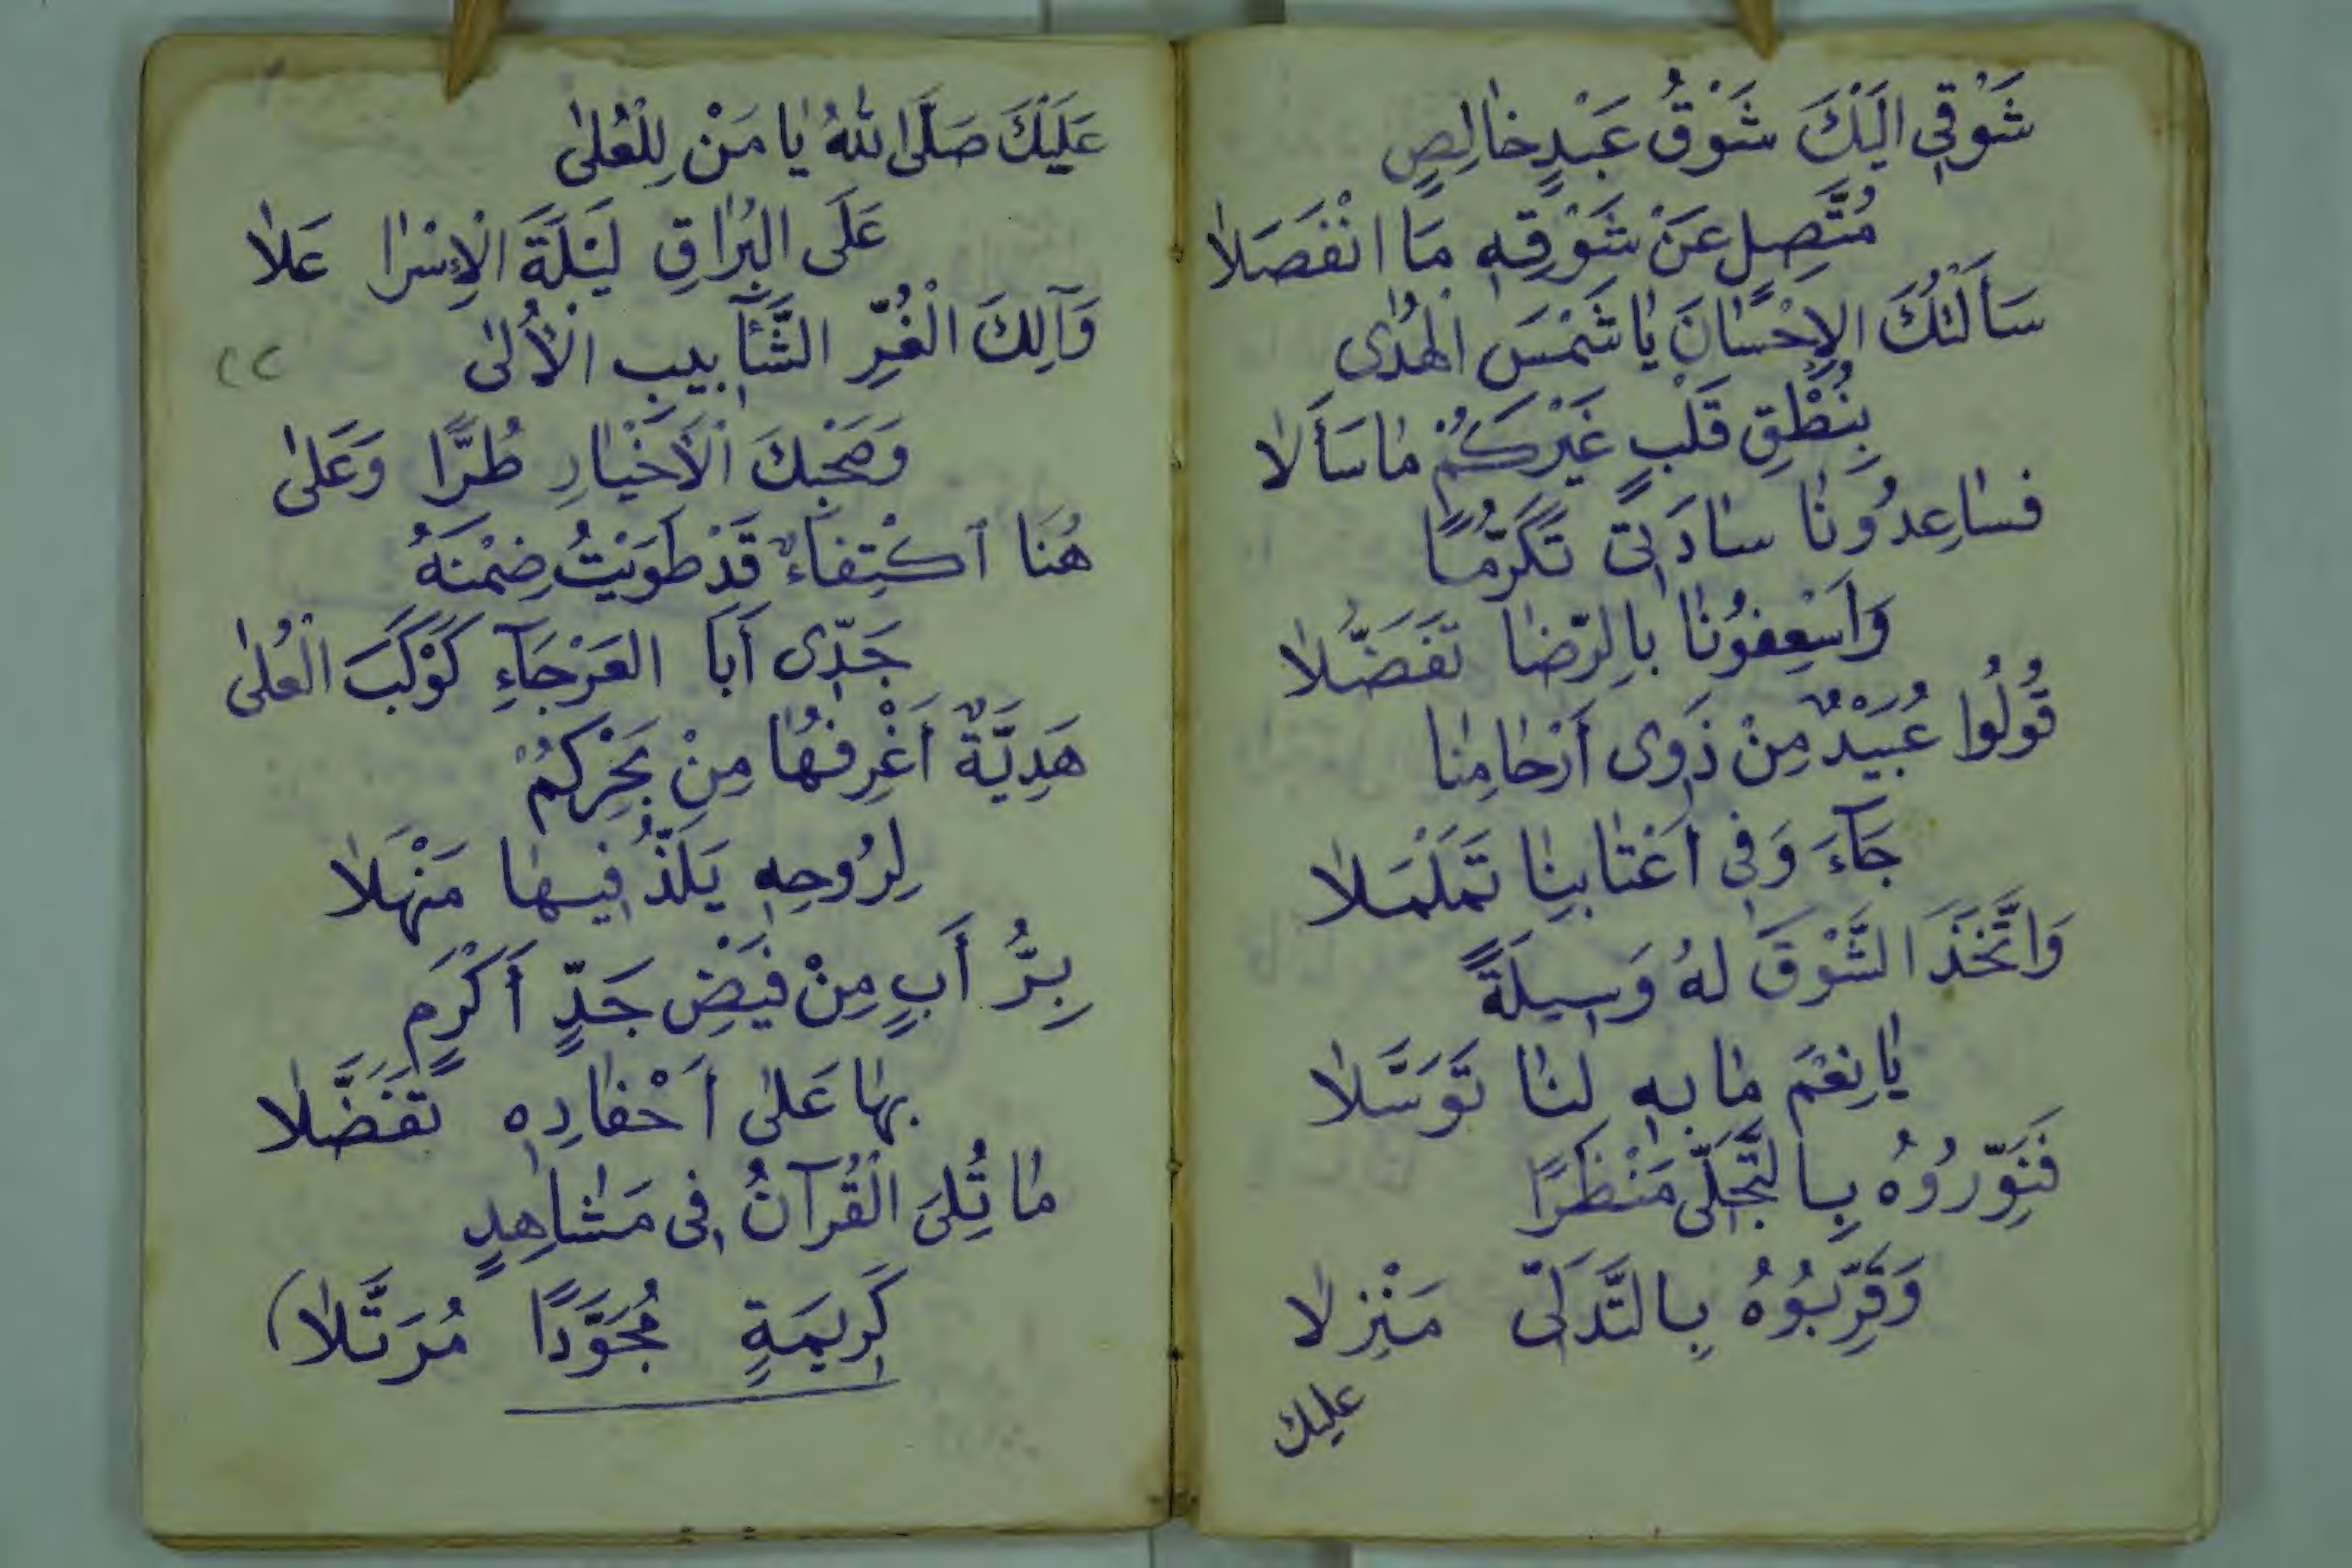 شَوْقِي اِلَيْكَ شَوْقُ عَبْدٍ خَالِصٍ
مُتَّصِلٍ عَنْ شَوْقِهِ مَا انْفَصَلَا
سَأَلْتُكَ الإِحْسَانَ يَا شَمْسَ الْهُدَى
بِنُطْقِ قَلْبٍ غَيْرَكُمْ مَا سَأَلَا
فَسَاعِدُونَا سَادَتِي تَكَرُّمًا
وَاَسْعِفُونَا بِالرِّضَا تَفَضُّلَا
قُولُوا عُبَيْدٌ مِنْ ذَوِى أَرْحَامِنَا
جَآءَ وَفِى اَعْتَابِنَا تَمَلْمَلَا
وَاتَّخَذَ الشَّوْقَ لَهُ وَسِيلَةً
يَا نِعْمَ مَا بِهِ لَنَا تَوَسَّلَا
فَنَوِّرُوُهُ بِالتَّجَلِّى مَنْظَرًا
وَقَرِّبُوُهُ بِالتَّدَلِّى مَنْزِلَا
عليك
عَلَيْكَ صَلَّى اللهُ يَا مَنْ لِلْعُلَى
عَلَى الْبُرَاقِ لَيْلَةَ الْإِسْرَا عَلَا
وَآلِكَ الْغُرِّ الشَّآبِيبِ الْأُلَى
وَصَحْبِكَ الْأَخْيَارِ طُرًّا وَعَلَى
هُنَا ٱكْتِفَاءٌ قَدْ طَوَيْتُ ضِمْنَهُ
جَدِّى أَبَا العَرْجَآءِ كَوْكَبَ الْعُلَى
هَدِيَّةٌ أَغْرِفُهَا مِنْ بَحْرِكُمْ
لِرُوحِهِ يَلَذُّ فِيهَا مَنْهَلَا
بِرُّ أَبٍ مِنْ فَيْضِ جَدٍّ أَكْرَمٍ
بِهَا عَلَى اَحْفَادِهِ تَفَضَّلَا
مَا تُلِىَ الْقُرآنُ فِى مَشَاهِدٍ
كَرِيمَةٍ مُجَوَّدًا مُرَتَّلَا)